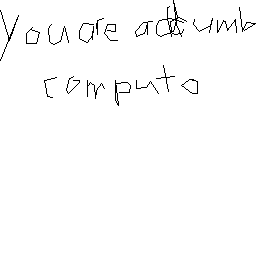 You are a dumb
computo